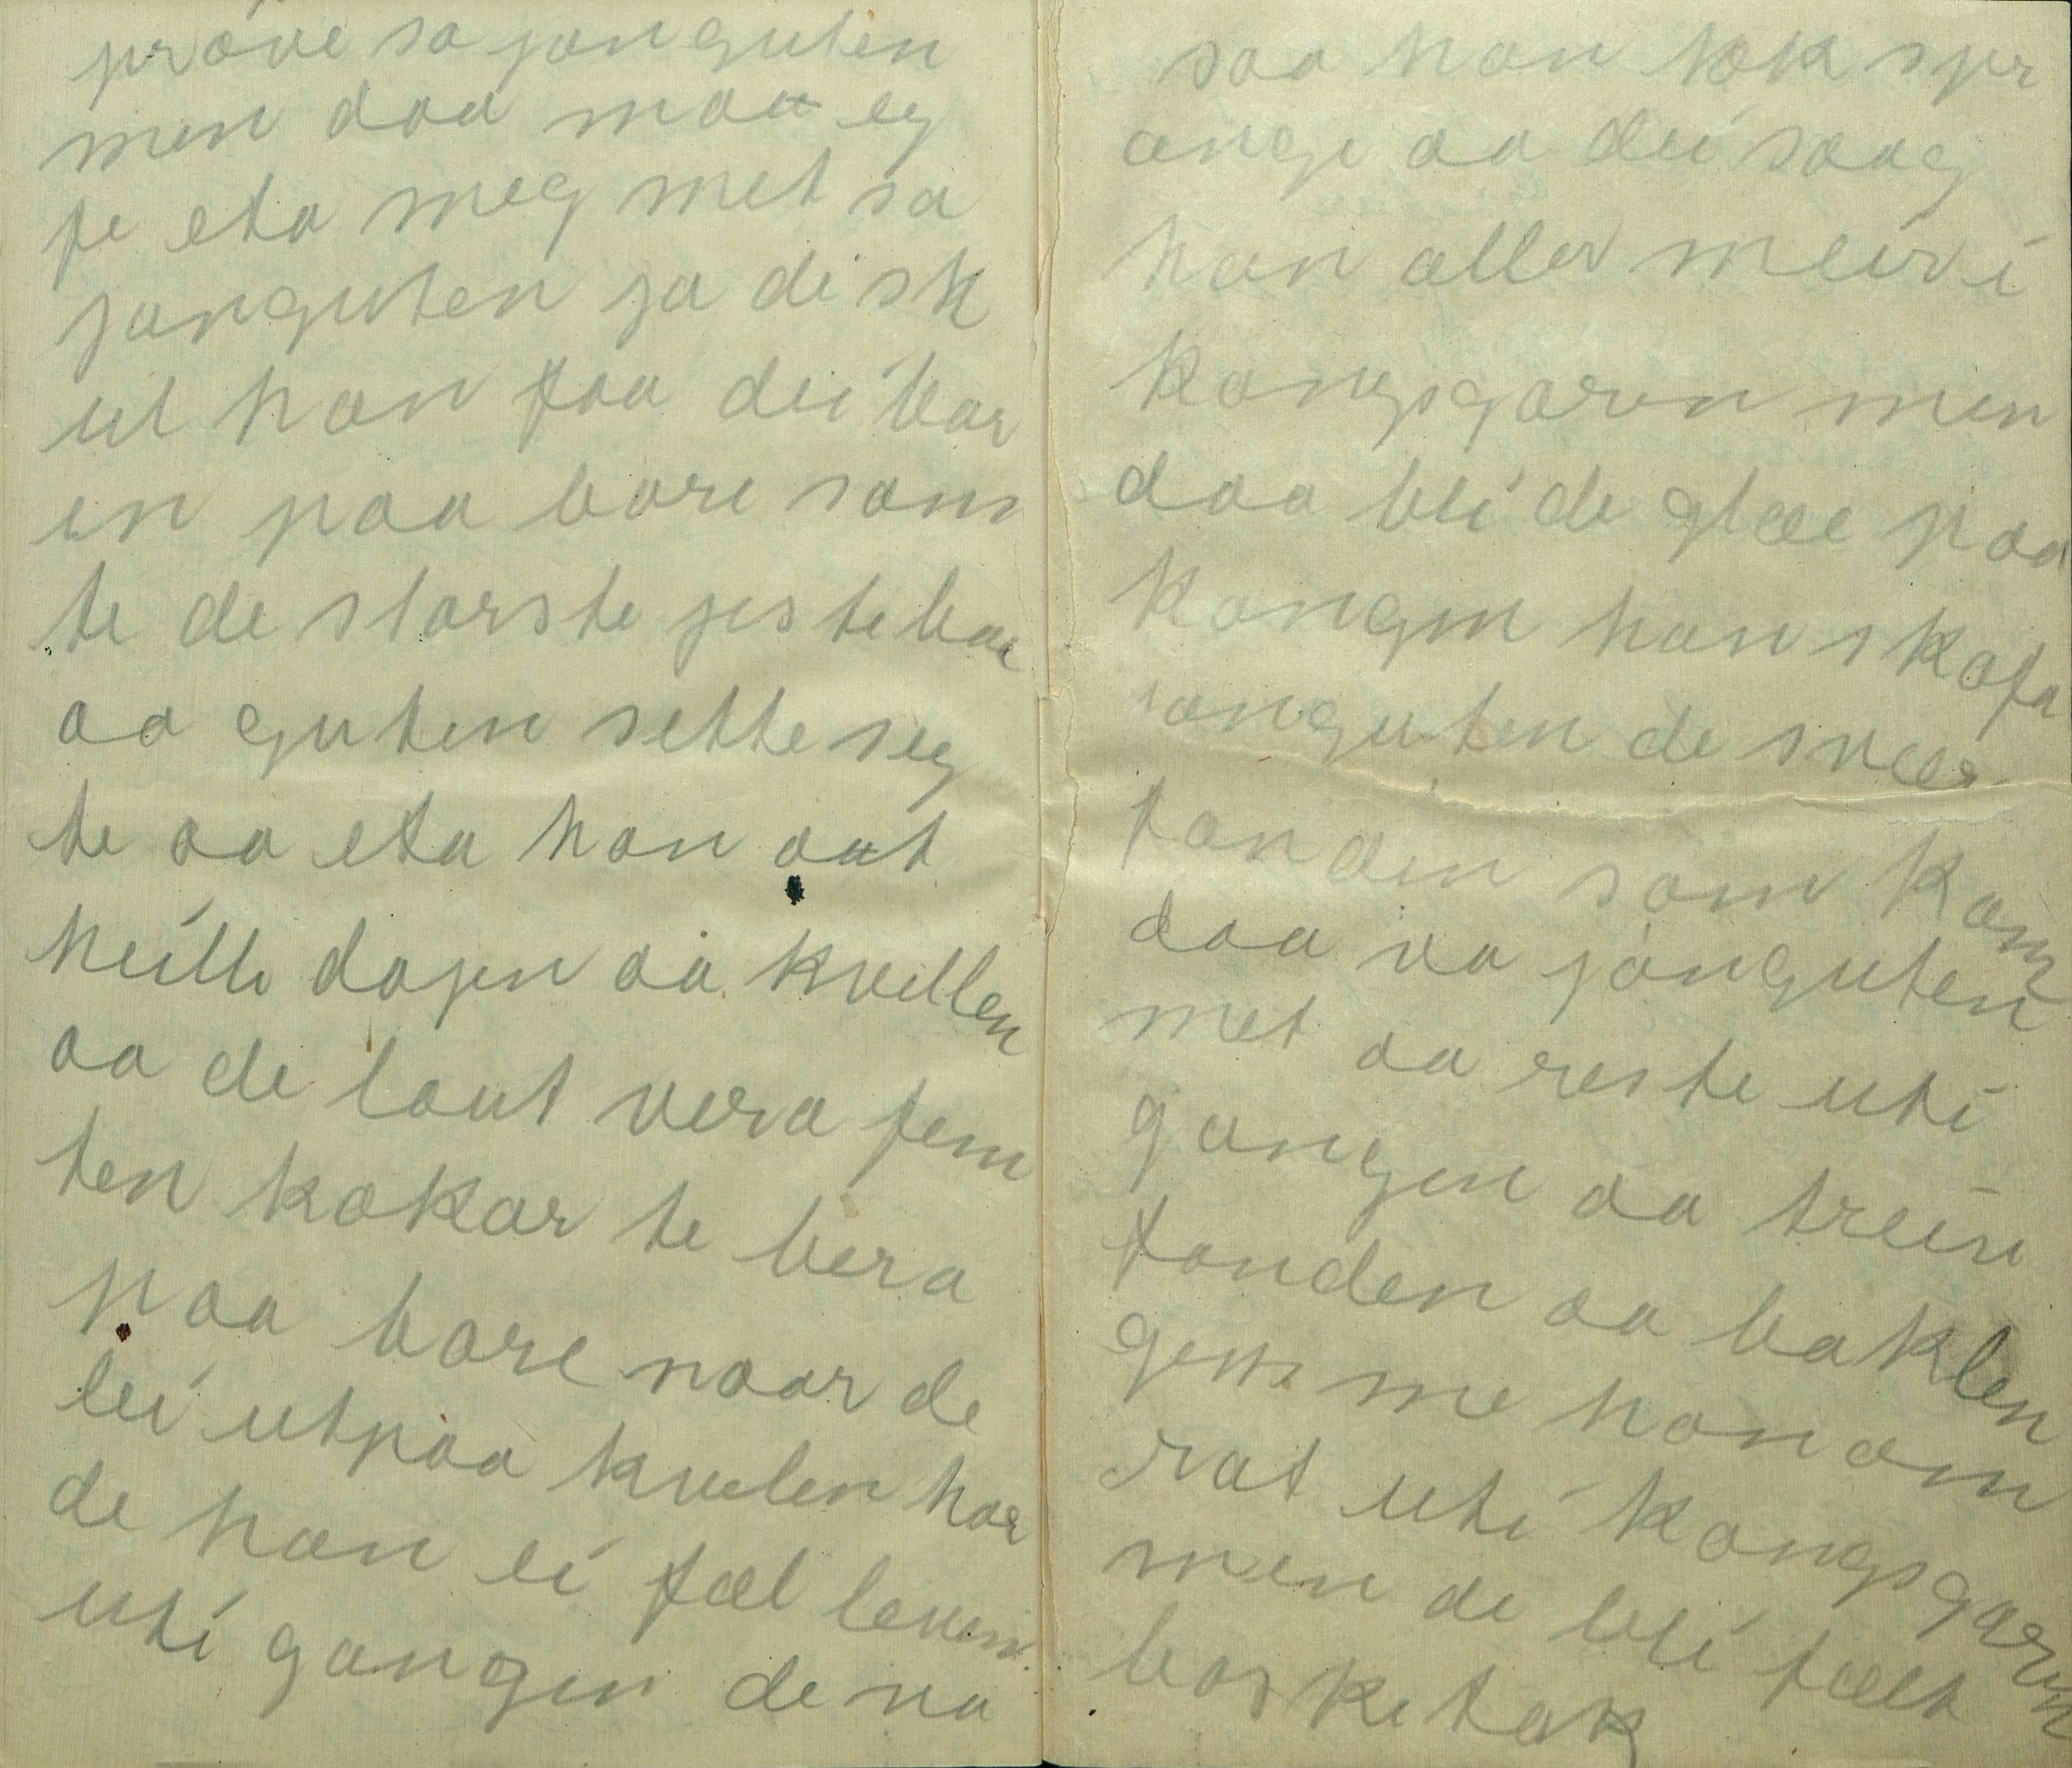 prøve sa jonguten
men daa maa eg
fe eta meg met sa
jonguten ja di sk
ul han faa dei bar
en paa bore som
te de største jestebae
aa guten sette seg
te aa eta han aat
heille dagen aa kvellen
aa de laut vera fem
ten kokar te bera
paa bore naar de
lei utpaa kvelen hør
de han ei fæl leven
uti gangen de va
saa han tok spr
ange aa dei saag
han aller meir i
kongsgaren men
daa blei de glæe paa
kongen han skafa
jonguten de svær
fanden som kom
daa va jonguten
met aa reste uti
gangen aa treiv
fanden aa baklen
gjess me honom
rat uti kongsgaren
men de blei fælt
basketak